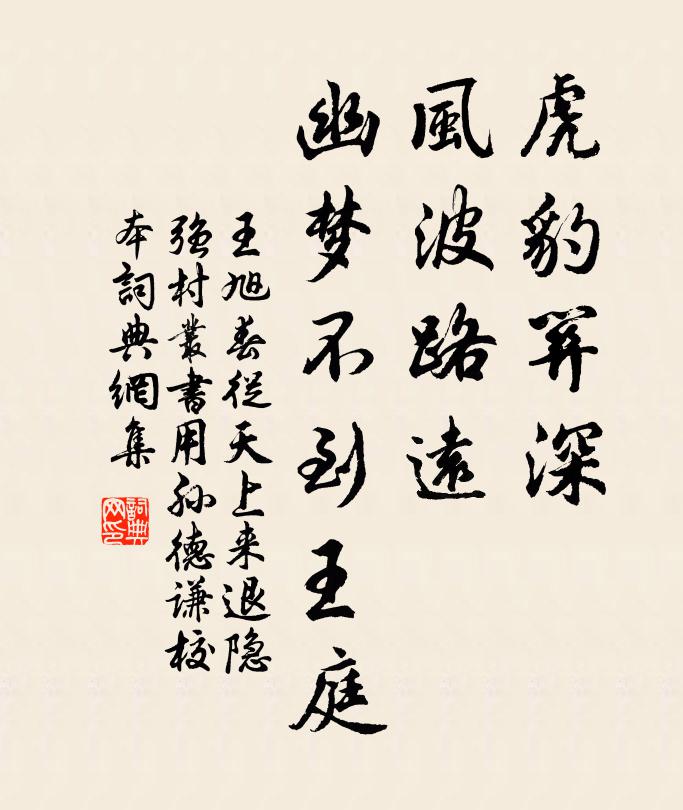 虎豹關深
風波路遠
幽梦不到王庭
王旭春從天上来退隐
強村叢書用孙德谦校
本詞典網集
詞典网印